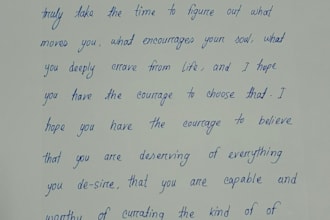 truly take the time to figure out what
moves you, what encourages your soul, what
you deeply crave from life, and I hope
you have the courage to choose that. I
hope you have the courage to believe
that you are deserving of everything
you de-sire, that you are capable and
worthy of curating the kind of of